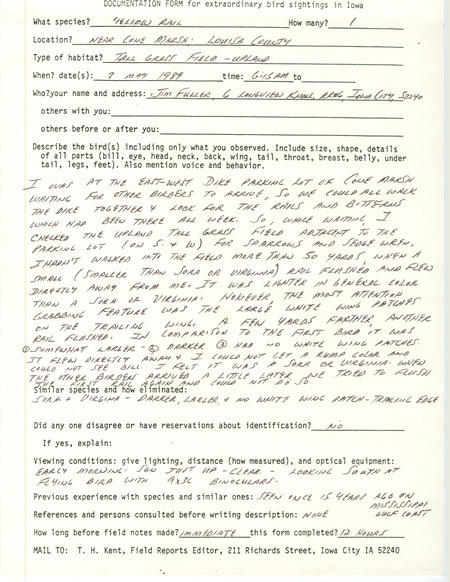 DOCUMENTATION FORM for extraordinary bird sightings in Iowa
What species? YELLOW RAIL How many? 1
Location? NEAR CONE MARSH - LOUISA COUNTY
Type of habitat? TALL GRASS FIELD - UPLAND
When? date(s): 7 MAY 1989 time: 6:15 AM to
Who?your name and address: JIM FULLER, 6 LONGVIEW KNOLL, RR#6, IOWA CITY, 52240
others with you:
others before or after you:
Describe the bird(s) including only what you observed. Include size, shape, details
of all parts (bill, eye, head, neck, back, wing, tail, throat, breast, belly, under
tail, legs, feet). Also mention voice and behavior.
I WAS AT THE EAST-WEST DIKE PARKING LOT OF CONE MARSH
WAITING FOR OTHER BIRDERS TO ARRIVE, SO WE COULD ALL WALK
THE DIKE TOGETHER & LOOK FOR THE RAILS AND BITTERNS
WHICH HAD BEEN THERE ALL WEEK. SO, WHILE WAITING, I
CHECKED THE UPLAND TALL GRASS FIELD ADJACENT TO THE
PARKING LOT (ON S. & W) FOR SPARROWS AND SEDGE WREN.
I HADN'T WALKED INTO THE FIELD MORE THAN 50 YARDS, WHEN A
SMALL (SMALLER THAN SORA OR VIRGINIA) RAIL FLUSHED AND FLEW
DIRECTLY AWAY FROM ME. IT WAS LIGHTER IN GENERAL COLOR
THAN A SORA OR VIRGINIA. HOWEVER, THE MOST ATTENTION
GRABBING FEATURE WAS THE LARGE WHITE WING PATCHES
ON THE TRAILING WING. A FEW YARDS FARTHER, ANOTHER
RAIL FLUSHED. IN COMPARISON TO THE FIRST BIRD IT WAS
① SOMEWHAT LARGER - ② DARKER ③ HAD NO WHITE WING PATCHES.
IT FLEW DIRECTLY AWAY & I COULD NOT LET A RUMP COLOR AND
COULD NOT SEE BILL. I FELT IT WAS A SORA OR VIRGINIA. WHEN
THE OTHER BIRDERS ARRIVED A LITTLE LATER, WE TRIED TO FLUSH
THE FIRST RAIL AGAIN AND COULD NOT DO SO.
Similar species and how eliminated:
SORA & VIRGINIA - DARKER, LARGER, & NO WHITE WING PATCH - TRAILING EDGE
Did any one disagree or have reservations about identification? NO
If yes, explain:
Viewing conditions: give lighting, distance (how measured), and optical equipment:
EARLY MORNING - SUN JUST UP - CLEAR - LOOKING SOUTH AT
FLYING BIRD WITH 9X36 BINOCULARS.
Previous experience with species and similar ones: SEEN ONCE 15 YEARS AGO ON
MISSISSIPPI
GULF COAST
References and persons consulted before writing description: NONE
How long before field notes made? IMMEDIATE this form completed? 12 HOURS
MAIL TO: T. H. Kent, Field Reports Editor, 211 Richards Street, Iowa City IA 52240